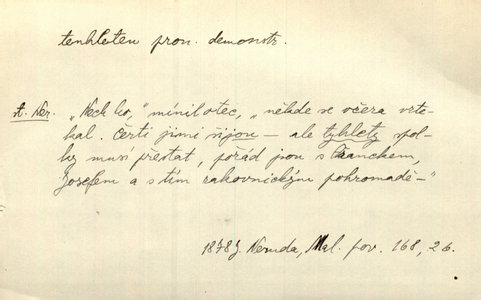 tenhleten pron. demonstr.
st. Ner. „Nech ho,“ mínil otec, „někde se včera vrte-
kal. Čerti jimi šijou – ale tyhlety spol-
ky musí přestat, pořád jsou s Franckem,
Josefem a s tím rakovnickým pohromadě –“
1878 J. Neruda, Mal. pov. 168, 26.